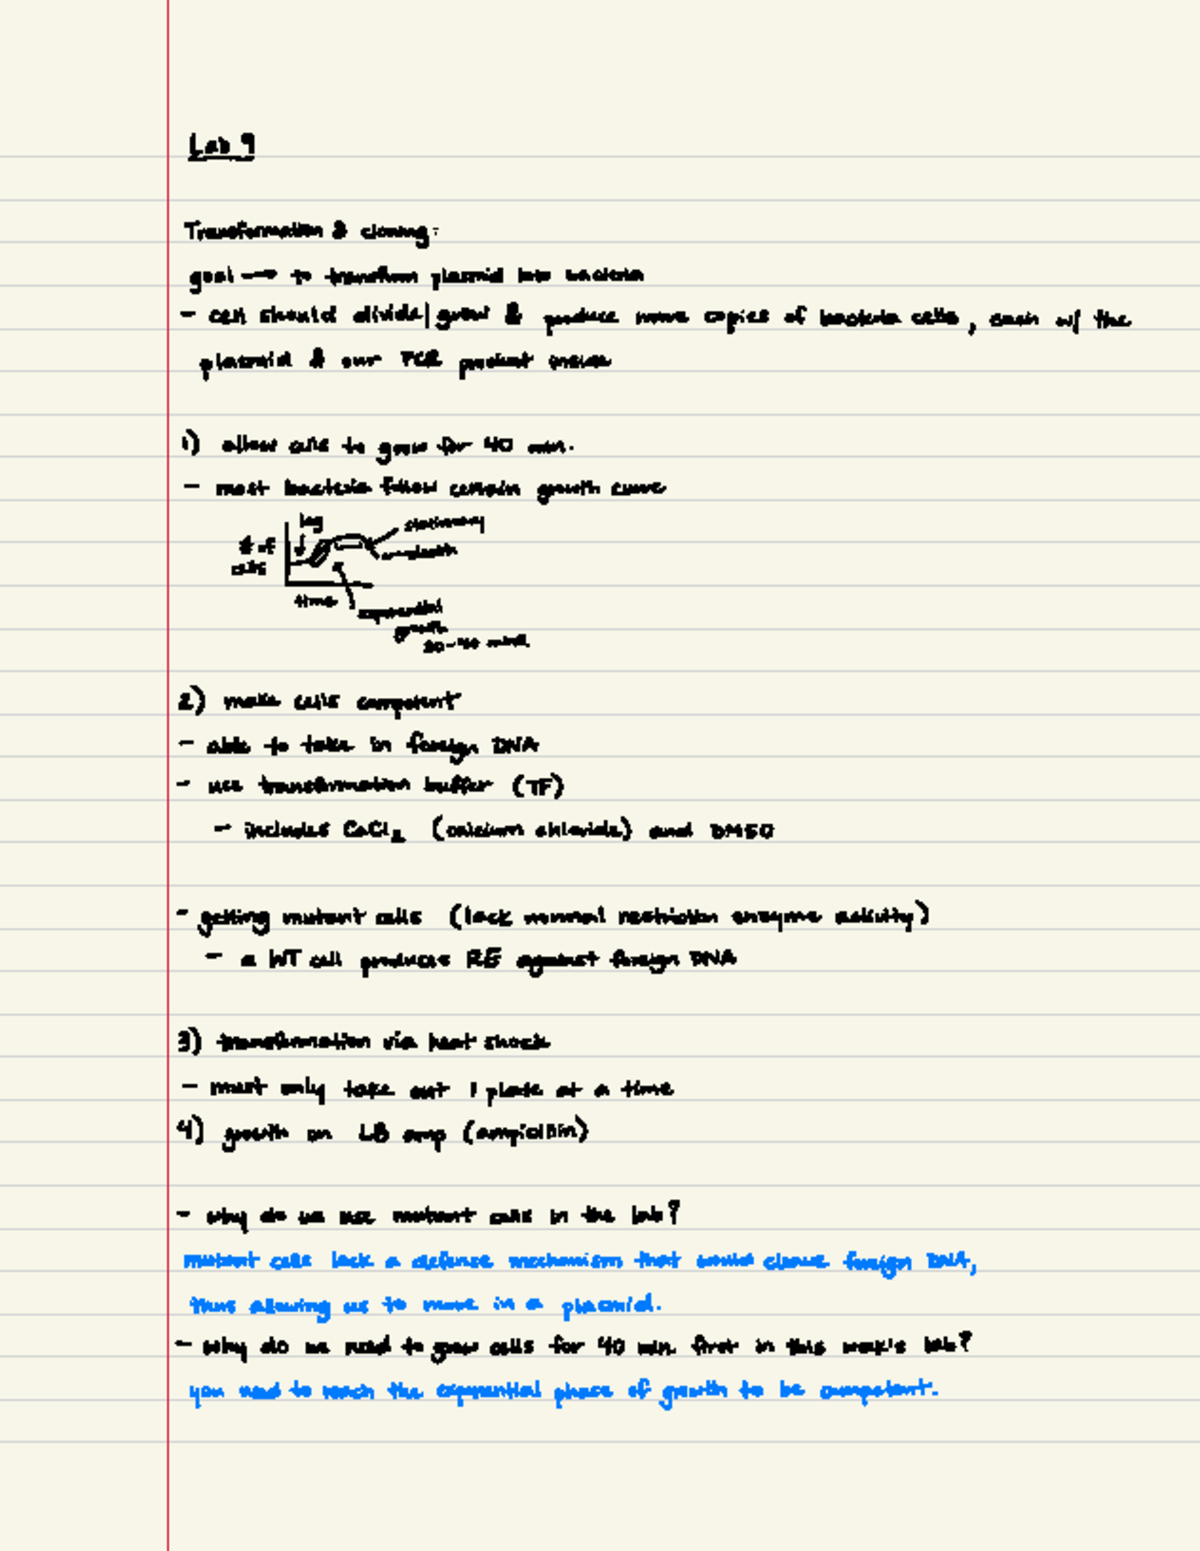 Lab 9
Transformation & cloning:
goal → to transform plasmid into bacteria
- cell should divide/grow & produce more copies of bacteria cells, each w/ the
plasmid & our PCR product inside
1) allow cells to grow for 40 min.
- most bacteria follow certain growth curve
lag
stationary
# of
cells
death
time
exponential
growth
20-40 mins.
2) make cells competent
- able to take in foreign DNA
- use transformation buffer (TF)
- includes CaCl₂ (calcium chloride) and DMSO
- getting mutant cells (lack normal restriction enzyme activity)
- a WT cell produces RE against foreign DNA
3) transformation via heat shock
- must only take out 1 plate at a time
4) growth on LB amp (ampicillin)
- why do we use mutant cells in the lab?
mutant cells lack a defense mechanism that would cleave foreign DNA,
thus allowing us to move in a plasmid.
- Why do we need to grow cells for 40 min. first in this week's lab?
you need to reach the exponential phase of growth to be competent.